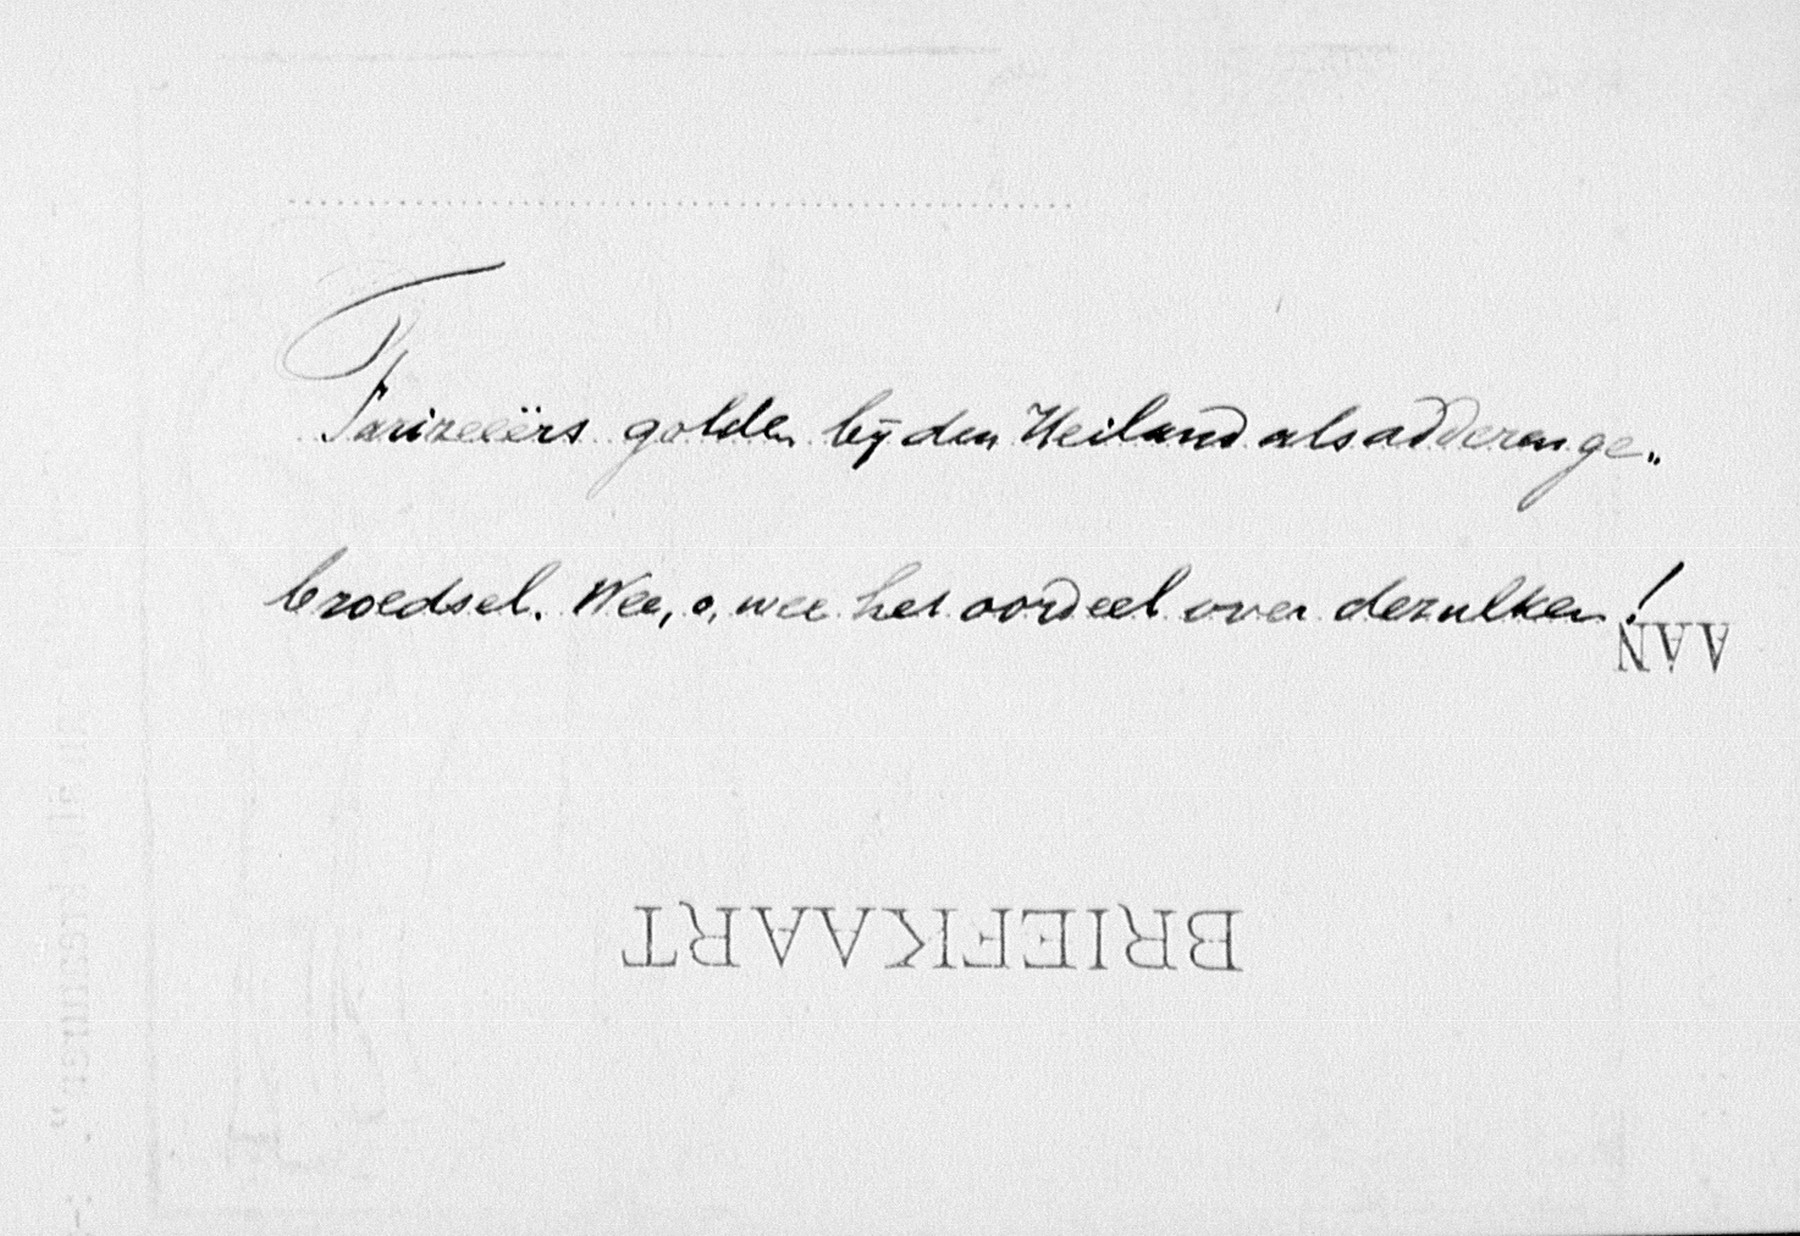 Farizeeërs golden bij den Heiland als adderenge„
broedsel. Wee, o, wee het oordeel over dezulken!
AAN
BRIEFKAART